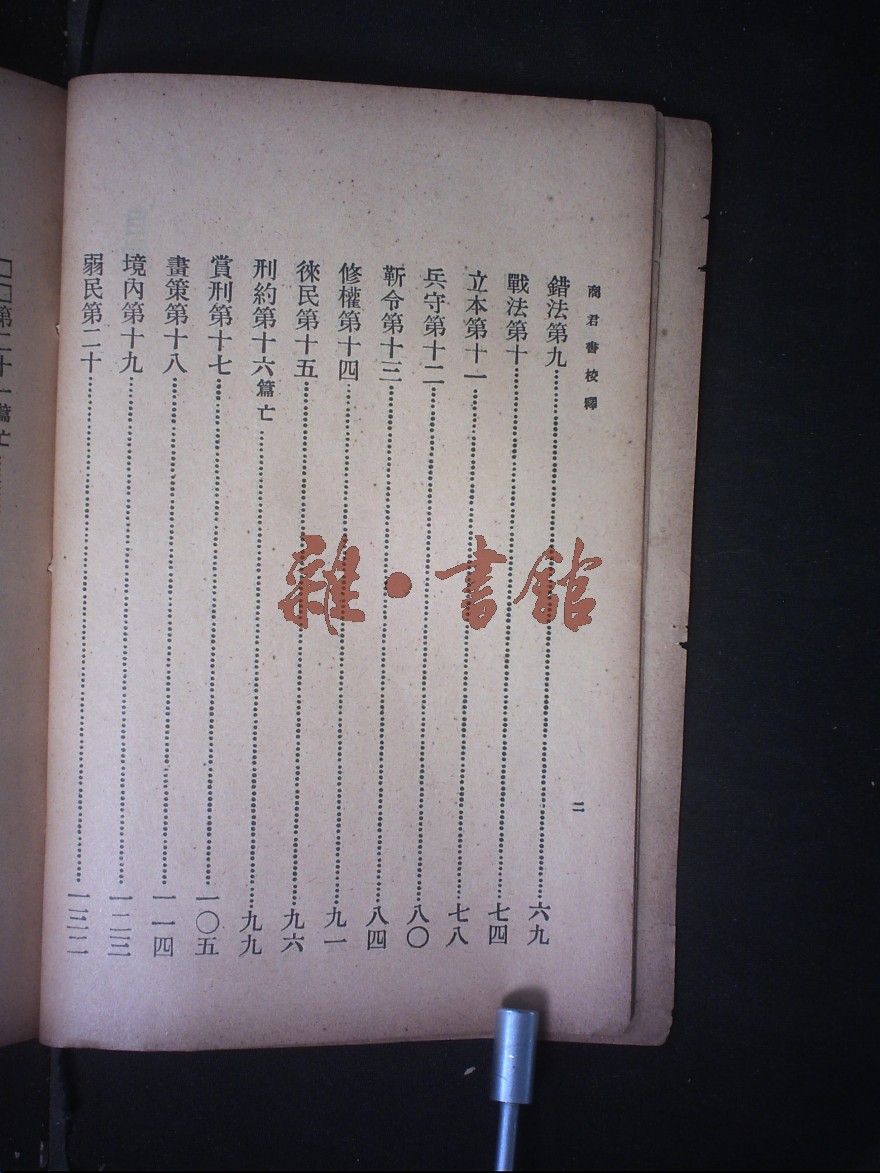 商君書校釋
二
錯法第九…………六九
戰法第十…………七四
立本第十一…………七八
兵守第十二…………八〇
靳令第十三…………八四
修權第十四…………九一
徠民第十五…………九六
刑約第十六篇亡…………九九
賞刑第十七…………一〇五
畫策第十八…………一一四
境內第十九…………一二三
弱民第二十…………一三二
□□第二十一篇亡
雜·書館